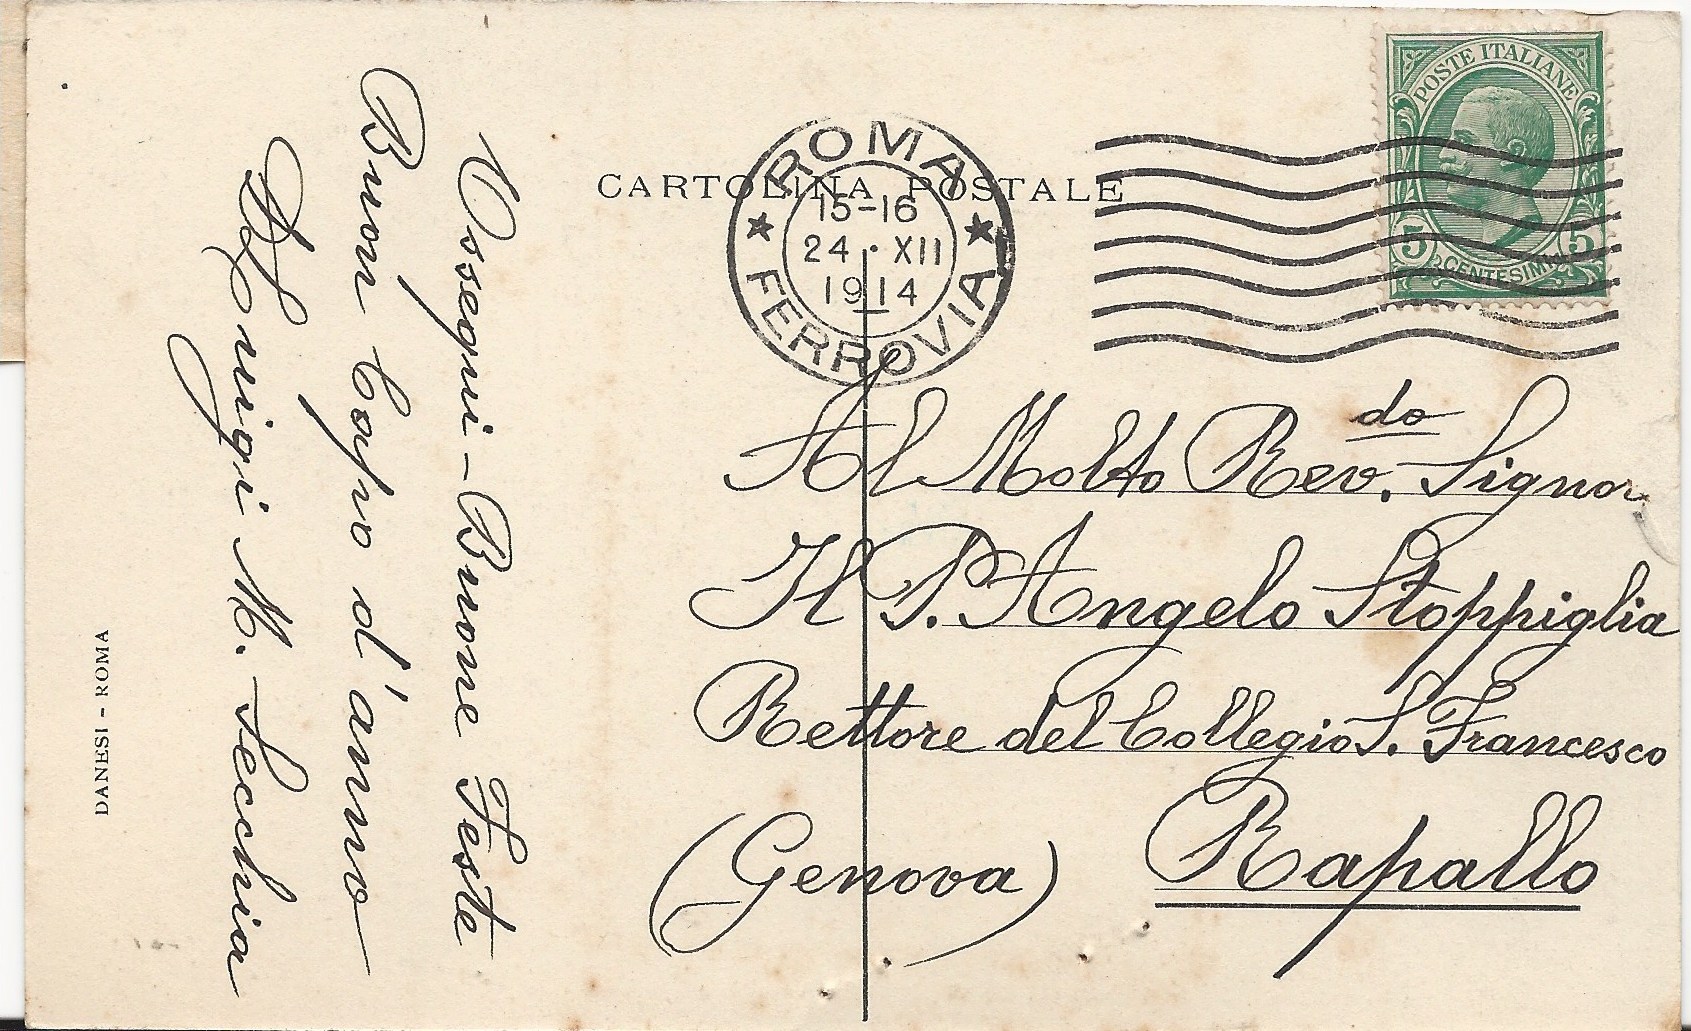 CARTOLINA POSTALE
ROMA
15-16
24 · XII
1914
FERROVIA
POSTE ITALIANE
5 CENTESIMI 5
Ossequi - Buone Feste
Buon Capo d'anno
Luigi M. Secchia
DANESI - ROMA
Al Molto Rev.do Signor
Il P. Angelo Stoppiglia
Rettore del Collegio S. Francesco
(Genova) Rapallo